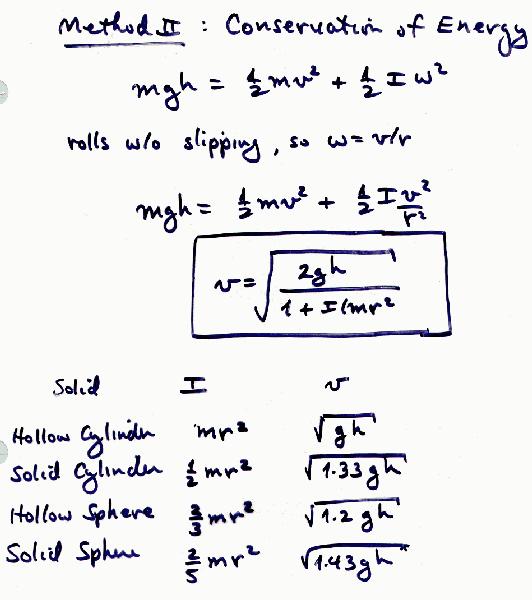 Method II : Conservation of Energy
mgh = 1/2 mv² + 1/2 I ω²
rolls w/o slipping, so ω = v/r
mgh = 1/2 mv² + 1/2 I v²/r²
v = √(2gh / (1 + I/mr²))
Solid I v
Hollow Cylinder mr² √gh
Solid Cylinder 1/2 mr² √1.33gh
Hollow Sphere mr² √1.2 gh
Solid Sphere 2/5 mr² √1.43gh